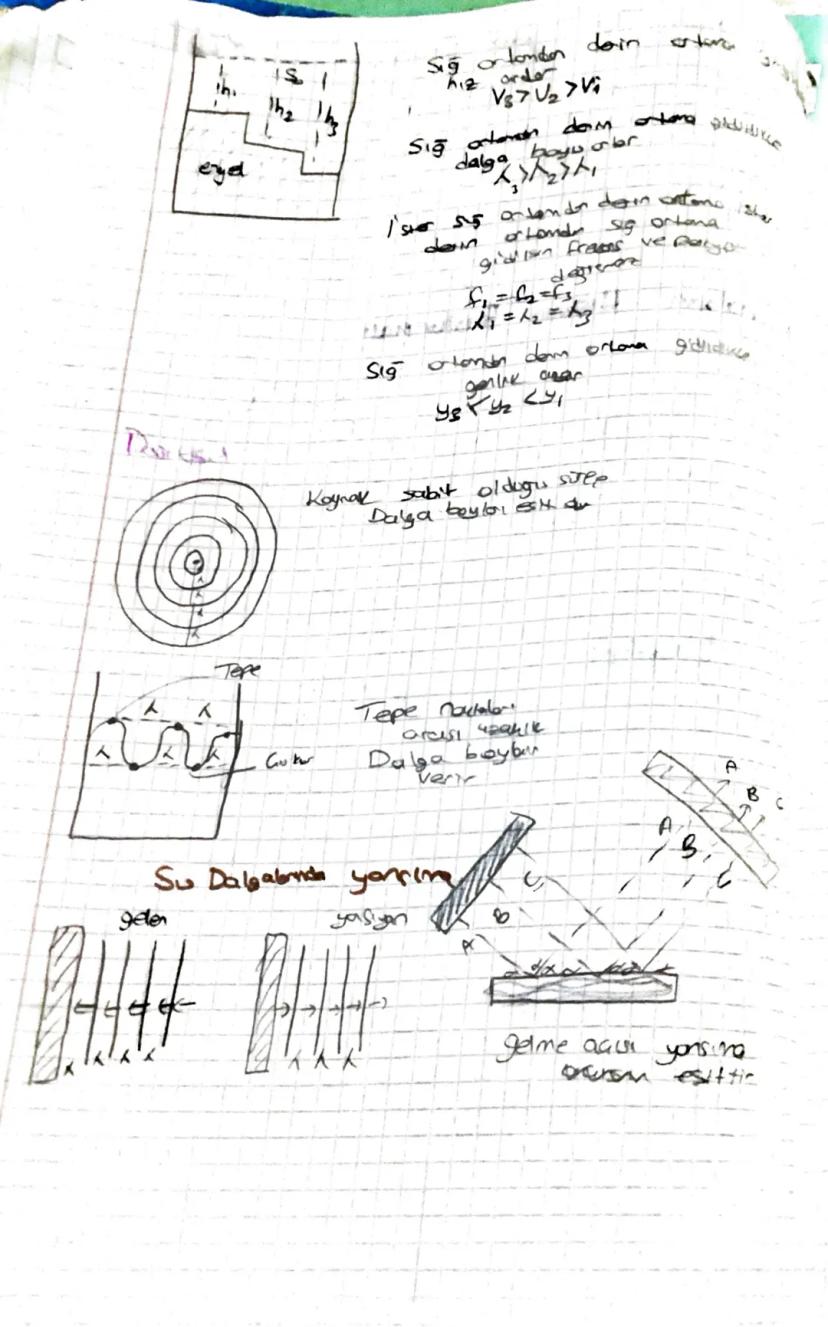 Sığ ortamdan derin ortama
hız artar
V3 > V2 > V1
h1
Su
h2
h3
engel
Sığ ortamdan derin ortama gidildikçe
dalga boyu artar
λ3 > λ2 > λ1
İster sığ ortamdan derin ortama ister
derin ortamdan sığ ortama
gidilsin frekans ve periyot
değişmez
f1 = f2 = f3
λ1 = λ2 = λ3
Sığ ortamdan derin ortama gidildikçe
genlik azalır
y3 < y2 < y1
Kaynak sabit olduğu sürece
Dalga boyları eşittir
λ
λ
λ
λ
Tepe
λ λ
λ λ λ
Çukur
Tepe noktaları
arası uzaklık
Dalga boyunu
verir
A
B
C
A
B
C
Su Dalgalarında yansıma
C
B
A
gelen
yansıyan
λ λ λ λ
λ λ λ
gelme açısı yansıma
açısına eşittir